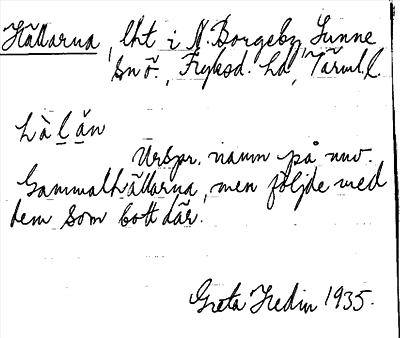 Hällarna, lht i N. Borgeby, Sunne
sn ö., Fryksd. hd, Värml. l.
hàḷăn
Urspr. namn på nuv.
Gammalhällarna, men följde med
dem som bott där.
Greta Hedin 1935.